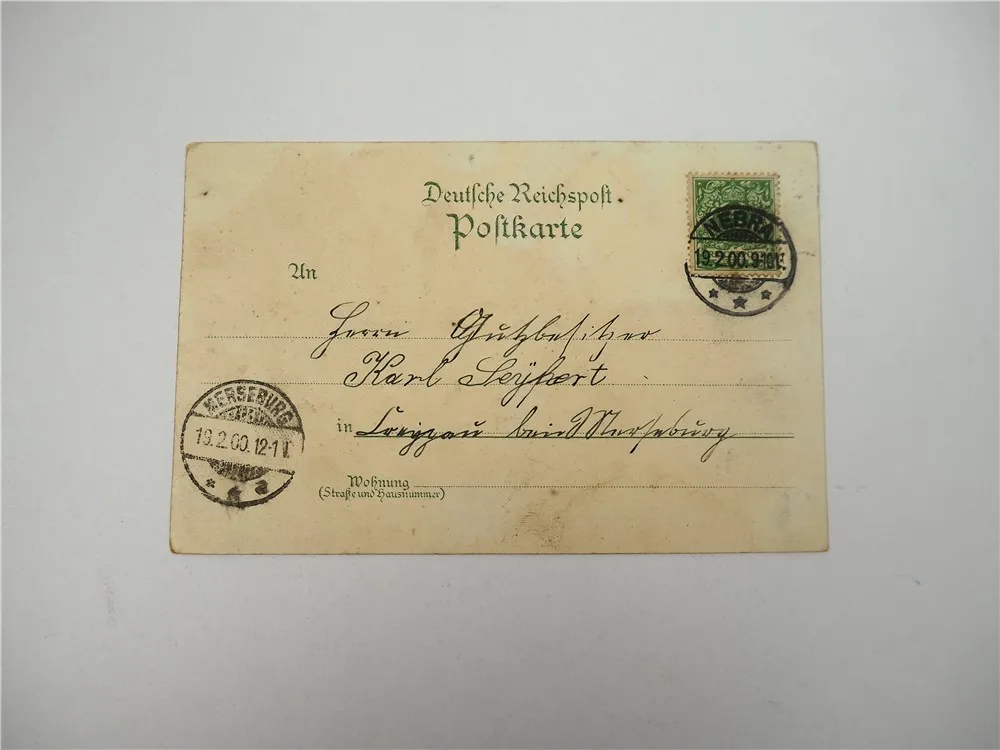 Deutsche Reichspost.
Postkarte
NEBRA
19.2.00.9-10V.
An
Herrn Gutsbesitzer
Karl Seyffert
in Creypau bei Merseburg
MERSEBURG
19.2.00.12-1 N.
* a
Wohnung
(Straße und Hausnummer)